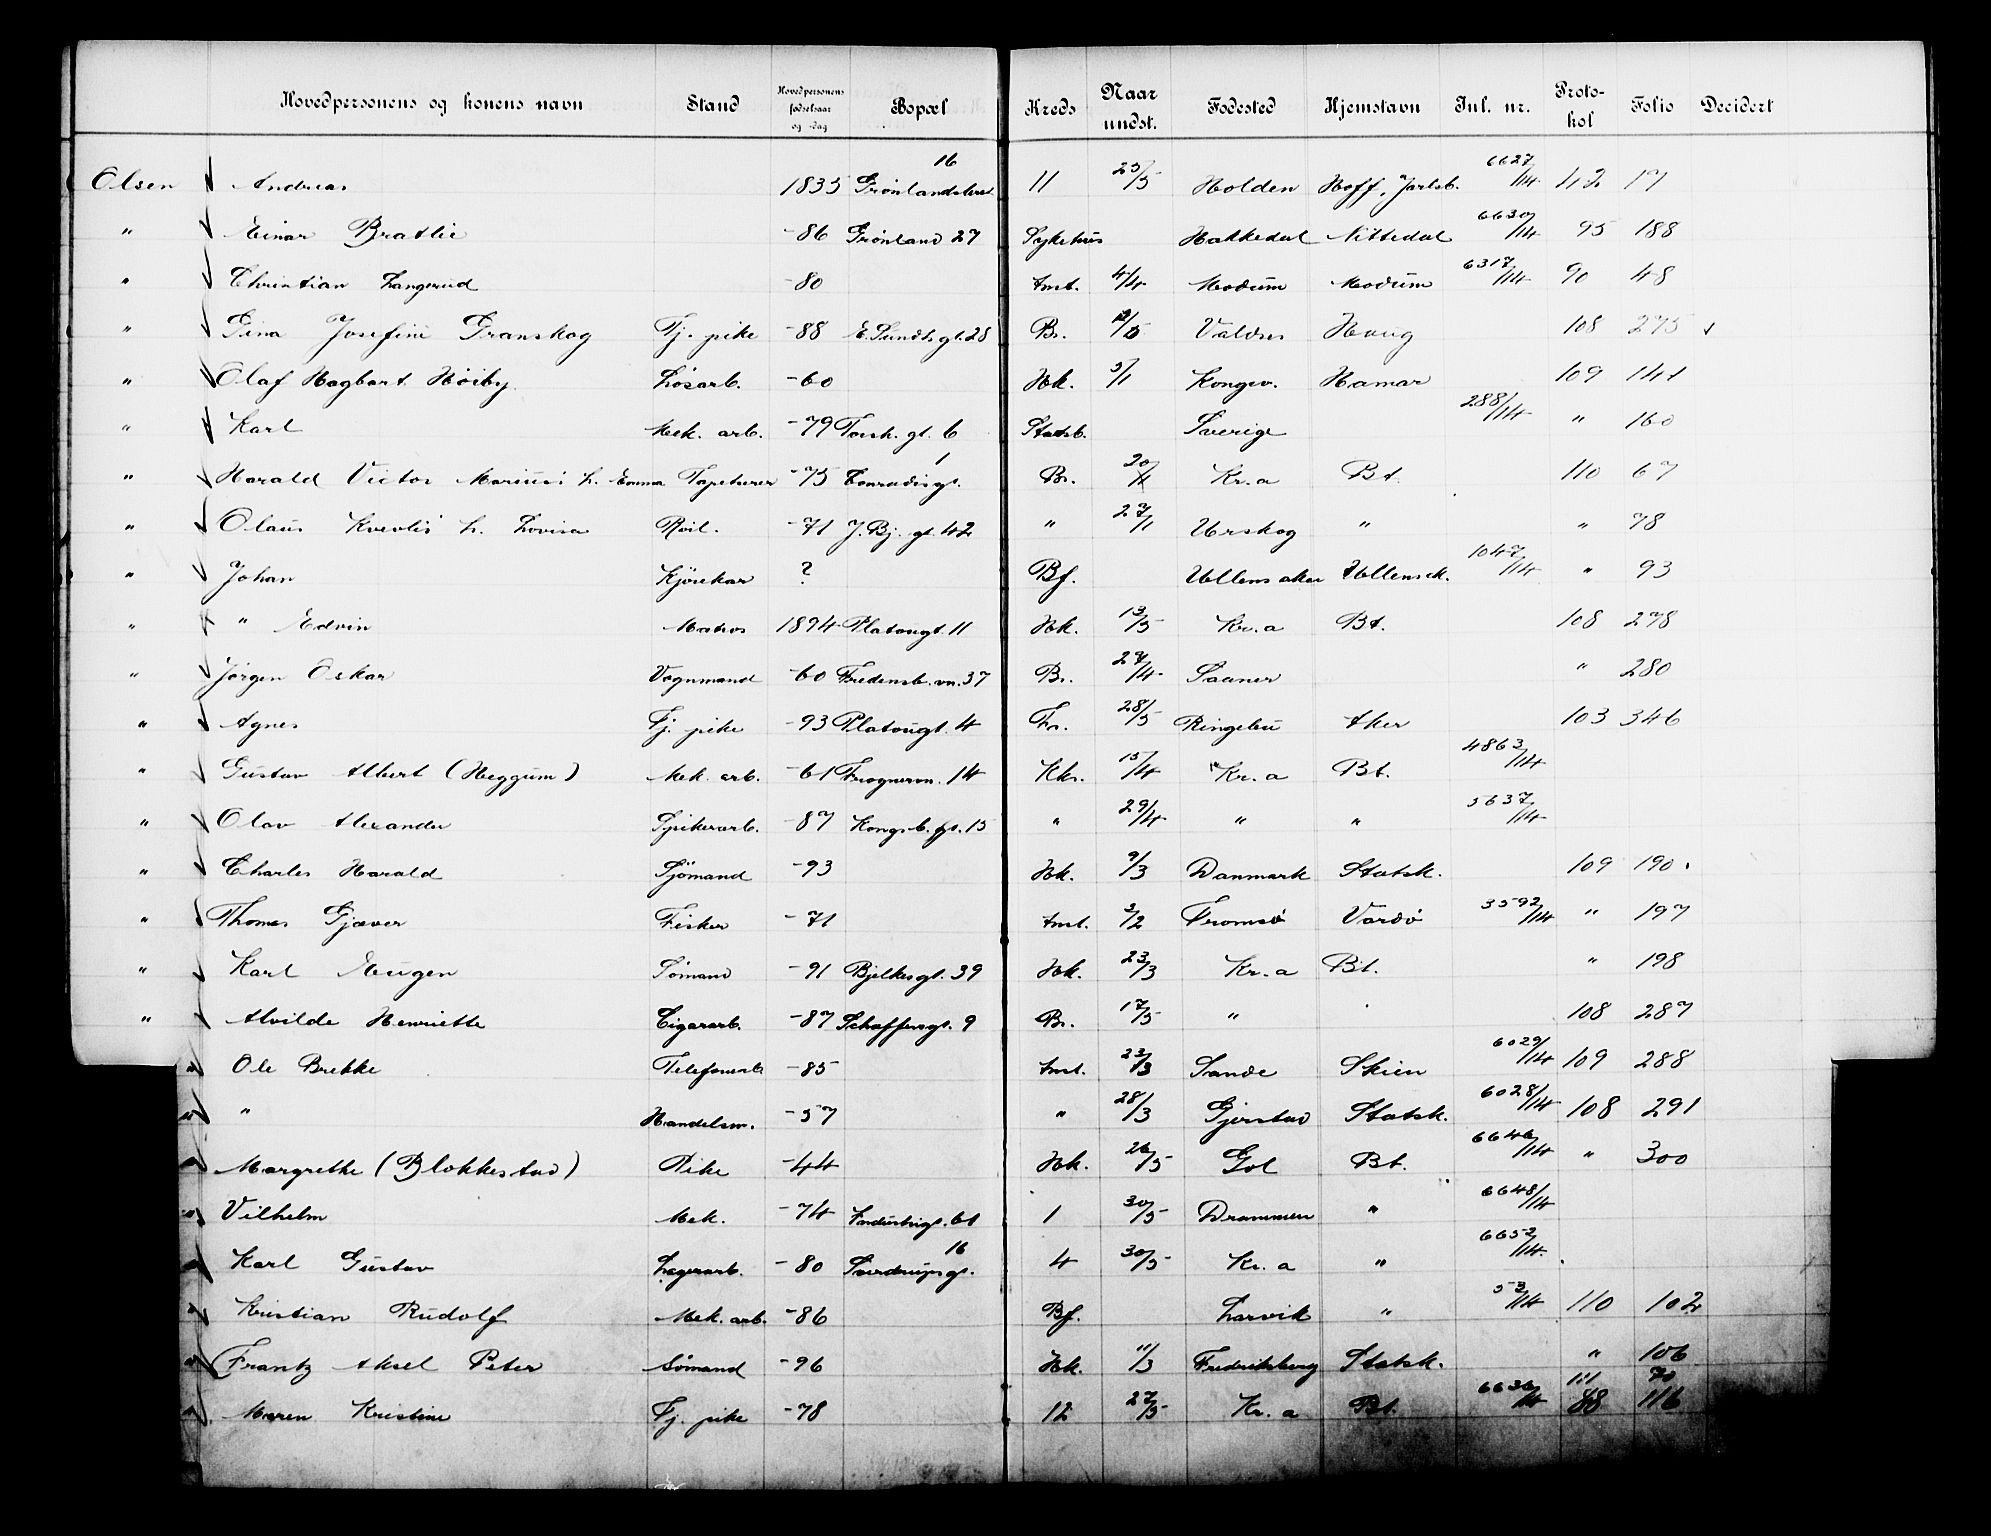 Hovedpersonens og konens navn Stand Hovedpersonens fødselsaar og -dag Bopæl Kreds Naar undst. Fødested Hjemstavn Inl. nr. Protokol Folio Decidert
Olsen Andreas 1835 Grønlandsleret 16 11 25/5 Holden Hoff, Jarlsb. 6627/14 42 17
" Einar Bratlie -86 Grønland 27 Sykehus Hakkedal Nittedal 6630/14 95 188
" Christian Langerud -80 Amt. 4/4 Modum Modum 6317/14 90 48
" Gina Josefine Granskog Tj. pike -88 E. Sundts gt. 28 Br. Valdres Haug 108 275
" Olaf Hagbart Høiby Løsarb. -60 Hk. 5/1 Kongsv. Hamar 109 141
" Karl Mek. arb. -79 Torsh. gt. 6 Statsb. Sverige 288/14 " 160
" Harald Victor Marius h. Emma Tapetserer -75 Conradisgt. 1 Br. 20/11 Kr.a Bt. 110 67
" Olaus Kvevli h. Lovisa Reil. -71 J. Bj. gt. 42 " 27/1 Urskog " " 78
" Johan Kjørekar ? Bf. Ullensaker Ullensak. 1047/14 " 93
" " Edvin Matros 1894 Platougt. 11 Hk. 13/5 Kr.a Bt. 108 278
" Jørgen Oskar Vognmand -60 Fredensb.vn. 37 Br. 27/4 Saaner " 280
" Agnes Tj. pike -93 Platougt. 4 Fr. 28/5 Ringebu Aker 103 346
" Gustav Albert (Heggum) Mek. arb. -61 Frognervn. 14 Kkr. 15/4 Kr.a Bt. 4863/14
" Olav Alexander Spikerarb. -87 Kongsb. gt. 15 " 29/4 " " 5637/14
" Charles Harald Sjømand -93 Hk. 9/3 Danmark Statsk. 109 190
" Thomas Gjæver Fisker -71 Amt. 2/2 Tromsø Vardø 3592/14 " 197
" Karl Eugen Sømand -91 Bjelkesgt. 39 Hk. 23/3 Kr.a Bt. " 198
" Alvilde Henriette Cigararb. -87 Schaffersgt. 9 Br. 17/5 " 108 287
" Ole Brekke Telefonarb -85 Amt. 23/3 Sande Skien 6029/14 109 288
" " Handelsm. -57 " 28/3 Gjerstad Statsk. 6028/14 108 291
" Margrethe (Blokkestad) Pike -44 Hk. 26/5 Gol Bt. 6646/14 " 300
" Vilhelm Mek. -74 Industrigt. 61 1 30/5 Drammen " 6648/14
" Karl Gustav Lagerarb. -80 Sverdrupsgt. 16 4 30/5 Kr.a " 6652/14
" Kristian Rudolf Mek. arb. -86 Bf. Larvik " 53/14 110 102
" Frantz Aksel Peter Sømand -96 Hk. 11/3 Fredriksberg Statsk. " 106
" Maren Kristine Tj. pike -78 12 27/5 Kr.a Bt. 6636/14 111 70 88 116